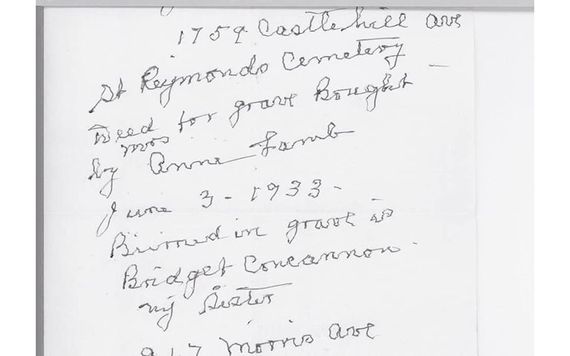 1759 Castle hill Ave
St Reymonds Cemetery
Deed for grave Bought
mrs
by Anne Lamb
June 3 - 1933 -
Burried in grave is
Bridget Concannon.
my Sister
917 Morris Ave